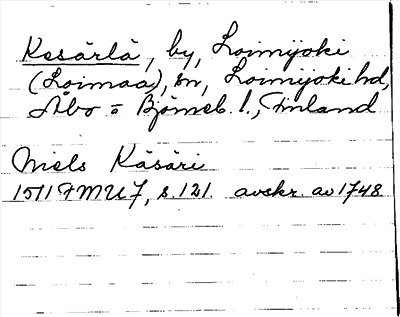 Kesärlä, by, Loimijoki
(Loimaa), sn, Loimijoki hd,
Åbo = Björneb. l., Finland
Niels Käsäri
1511 FMU 7, s. 121. avskr. av 1748